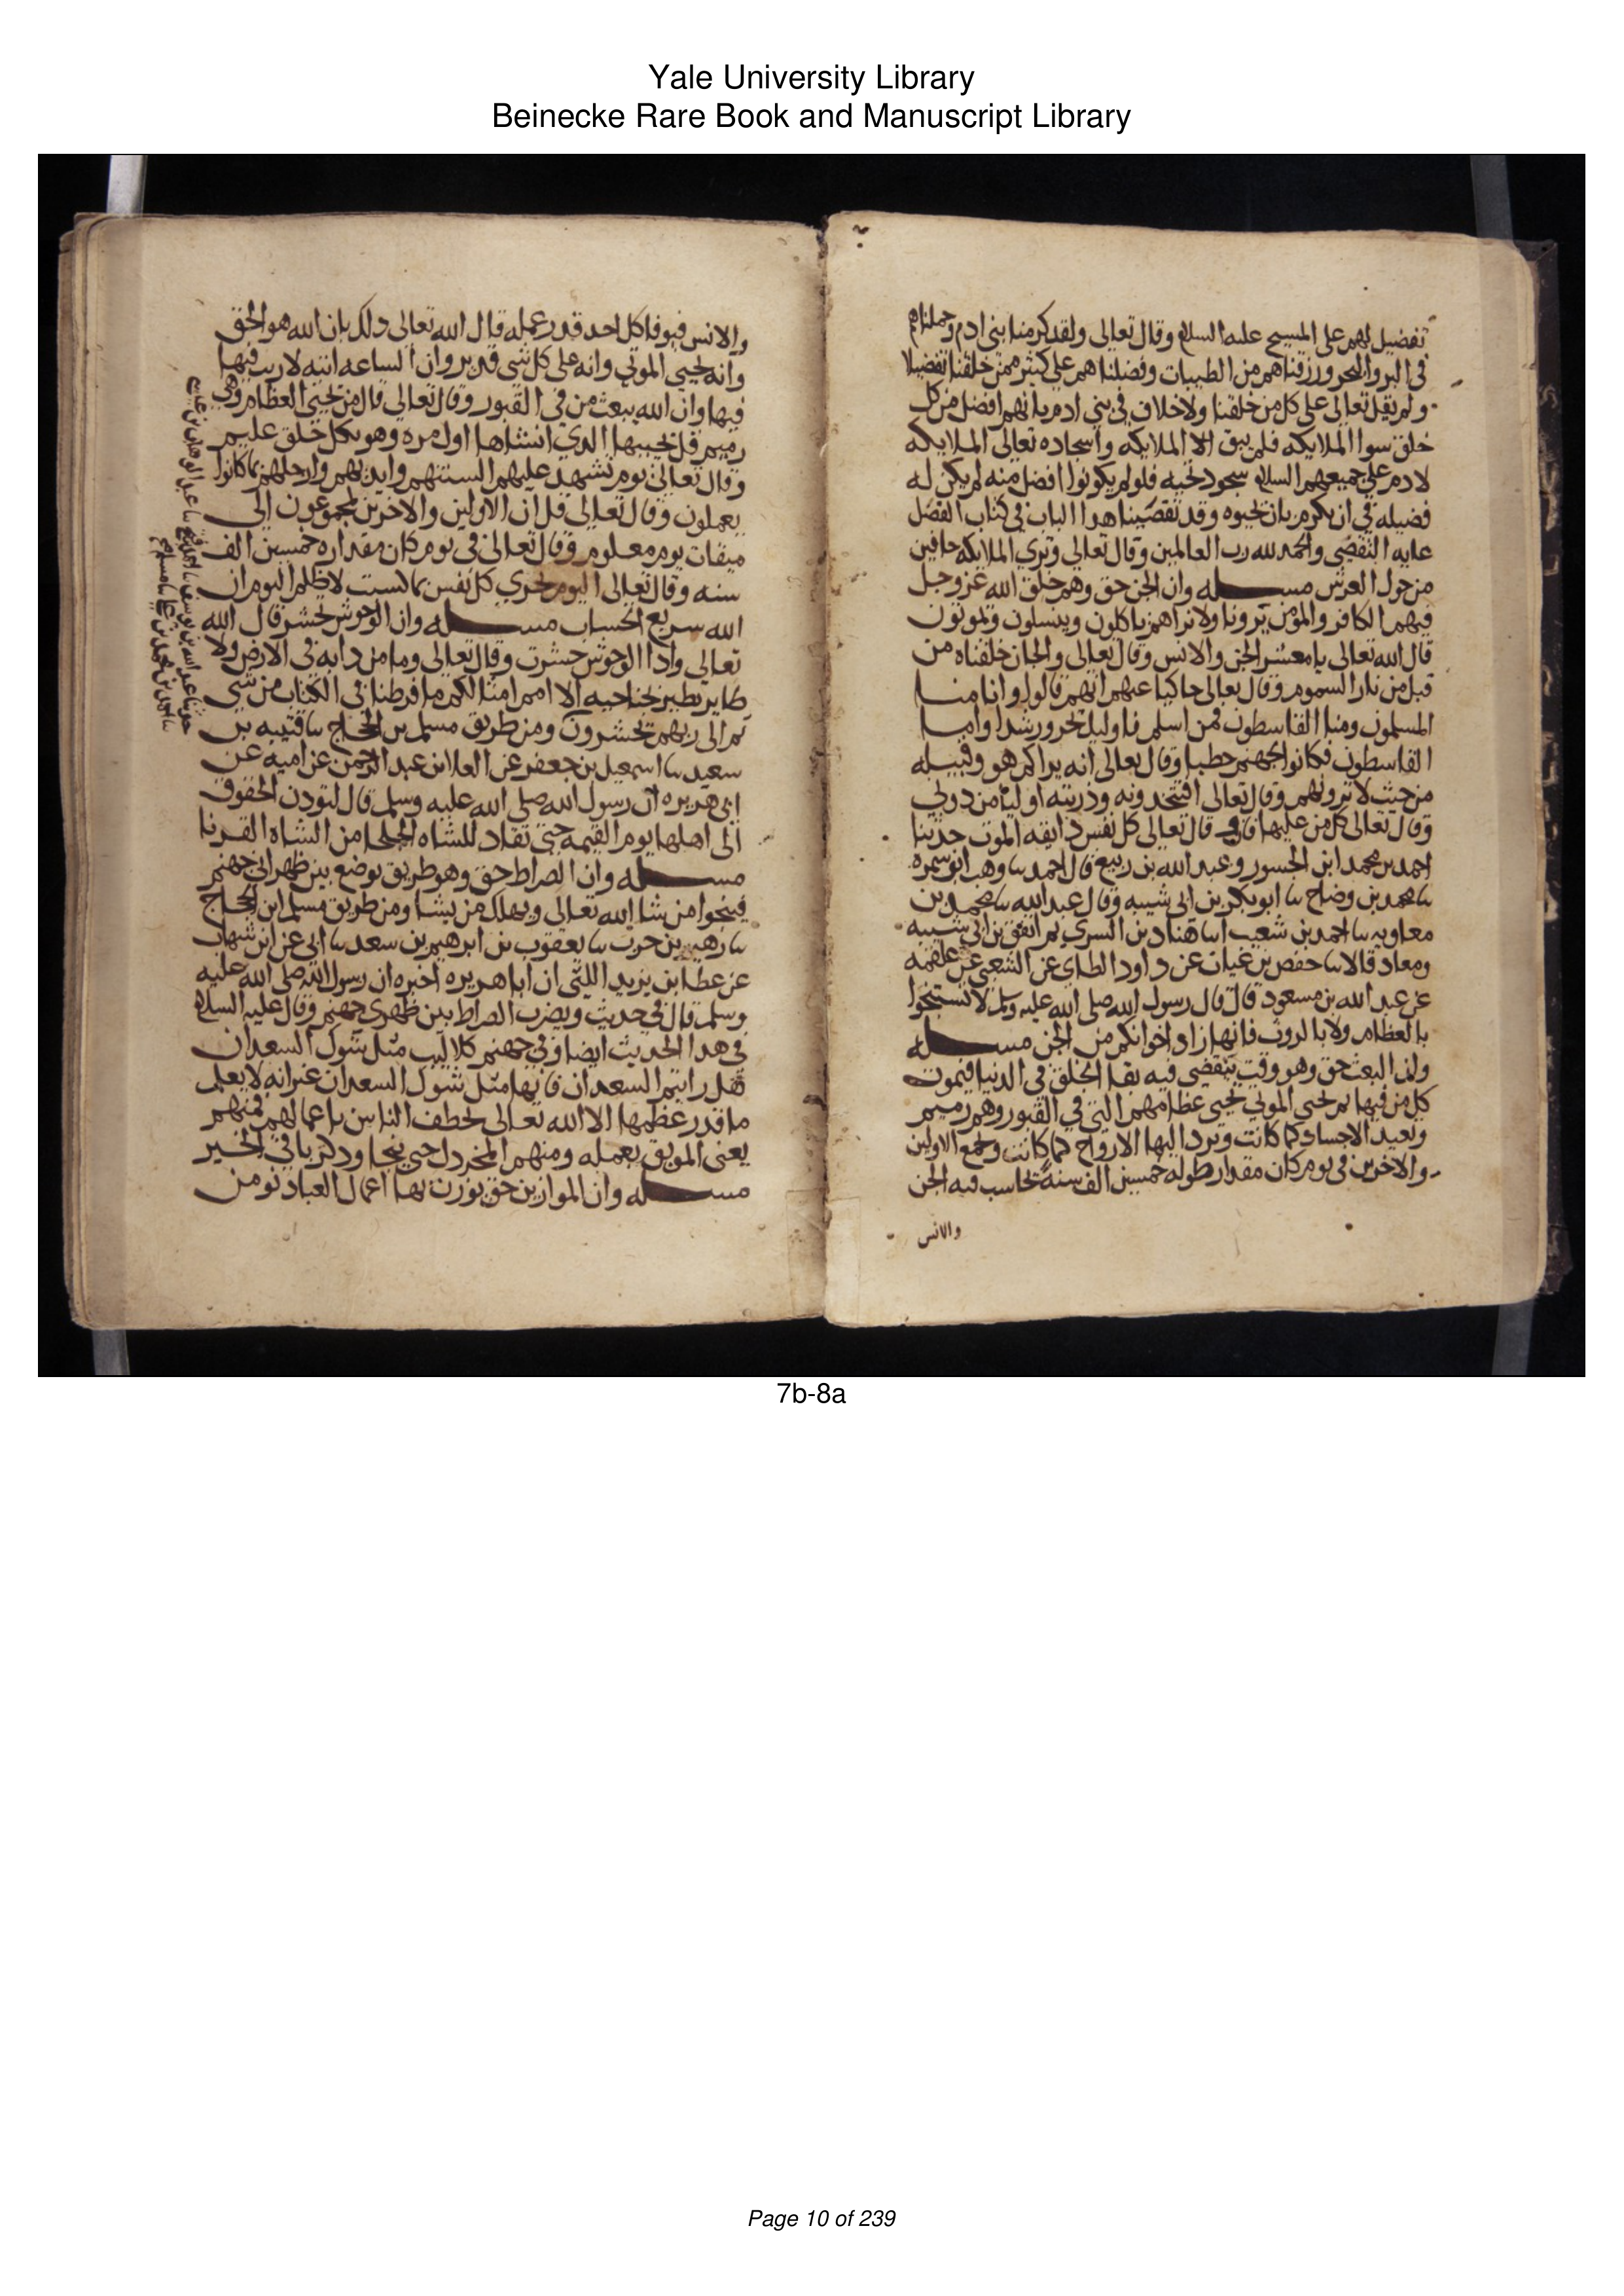 Yale University Library
Beinecke Rare Book and Manuscript Library
تفضيل لهم على المسيح عليه السلام وقال تعالى ولقد كرمنا بني ادم وحملناهم
في البر والبحر ورزقناهم من الطيبات وفضلناهم على كثير ممن خلقنا تفضيلا
ولم يقل تعالى على كل من خلقنا ولا خلاف في بني ادم بانهم افضل من كل
خلق سوا الملايكه فلم يبق الا الملايكه واسجاده تعالى الملايكه
لادم على جميعهم السلام سجود تحيه فلو لم يكونوا افضل منه لم يكن له
فضيله في ان يكرم بان تحيوه وقد تقصينا هدا الباب في كتاب الفصل
غايه التقصي والحمد لله رب العالمين وقال تعالى وترى الملايكه حافين
من حول العرش مسله وان الجن حق وهم خلق الله عز وجل
فيهم الكافر والمومن يرونا ولا نراهم ياكلون وينسلون ويموتون
قال الله تعالى يا معشر الجن والانس وقال تعالى والجان خلقناه من
قبل من نار السموم وقال تعالى حاكيا عنهم انهم قالوا وانا منا
المسلمون ومنا القاسطون فمن اسلم فاوليك تحروا رشدا واما
القاسطون فكانوا لجهنم حطبا وقال تعالى انه يراكم هو وقبيله
من حيث لا ترونهم وقال تعالى افتتخدونه وذريته اوليا من دوني
وقال تعالى كل من عليها فان وقال تعالى كل نفس دايقه الموت حدثنا
احمد بن محمد ابن الجسور وعبد الله بن ربيع قال احمد نا وهب ابن مسره
نا محمد بن وضاح نا ابو بكر بن ابي شيبه وقال عبد الله نا محمد بن
معاويه نا احمد بن شعيب انا هناد بن السري ثم اتفق بن ابي شيبه
وهناد قالا نا حفص بن غياث عن داود الطاي عن الشعبي عن علقمه
عن عبد الله بن مسعود قال قال رسول الله صلى الله عليه وسلم لا تستنجوا
بالعظام ولا بالروث فانها زاد اخوانكم من الجن مسله
وان البعث حق وهو وقت ينقضي فيه بقا الخلق في الدنيا فيموت
كل من فيها ثم يحيى الموتى يحيى عظامهم التي في القبور وهم رميم
ويعيد الاجساد كما كانت ويرد اليها الارواح كما كانت ويجمع الاولين
والاخرين في يوم كان مقدار طوله خمسين الف سنة يحاسب فيه الجن
والانس
والانس فيوفا كل احد قدر عمله قال الله تعالى دلك بان الله هو الحق
وانه يحيي الموتى وانه على كل شي قدير وان الساعه اتيه لا ريب فيها
فيها وان الله يبعث من في القبور وقال تعالى قال من يحيي العظام وهي
رميم قل يحييها الدي انشاها اول مره وهو بكل خلق عليم
وقال تعالى يوم تشهد عليهم السنتهم وايديهم وارجلهم بما كانوا
يعملون وقال تعالى قل ان الاولين والاخرين لمجموعون الى
ميقات يوم معلوم وقال تعالى في يوم كان مقداره خمسين الف
سنه وقال تعالى اليوم تجزى كل نفس بما كسبت لا ظلم اليوم ان
الله سريع الحساب مسله وان الوحوش تحشر قال الله
تعالى وادا الوحوش حشرت وقال تعالى وما من دابه في الارض ولا
طاير يطير بجناحيه الا امم امثالكم ما فرطنا في الكتاب من شي
ثم الى ربهم يحشرون ومن طريق مسلم بن الحجاج نا قتيبه بن
سعيد نا اسمعيل بن جعفر عن العلا بن عبد الرحمن عن اميه عن
ابي هريره ان رسول الله صلى الله عليه وسلم قال لتودن الحقوق
الى اهلها يوم القيمه حتى تقاد للشاه الجلحا من الشاه القرنا
مسله وان الصراط حق وهو طريق يوضع بين ظهراني جهنم
فينجوا من شا الله تعالى ويهلك من يشا ومن طريق مسلم ابن الحجاج
نا زهير بن حرب نا يعقوب بن ابرهيم بن سعد نا ابي عن ابن شهاب
عن عطا بن يزيد الليثي ان ابا هريره اخبره ان رسول الله صلى الله عليه
وسلم قال في حديث ويضرب الصراط بين ظهري جهنم وقال عليه السلام
في هدا الحديث ايضا وفي جهنم كلاليب مثل شوك السعدان
هل رايتم السعدان فانها مثل شوك السعدان غير انه لا يعلم
ما قدر عظمها الا الله تعالى تخطف الناس باعمالهم فمنهم
يعني الموبق بعمله ومنهم المخردل حتى ينجا ودكر باقي الخبر
مسله وان الموازين حق توزن بها اعمال العباد نومن
7b-8a
Page 10 of 239